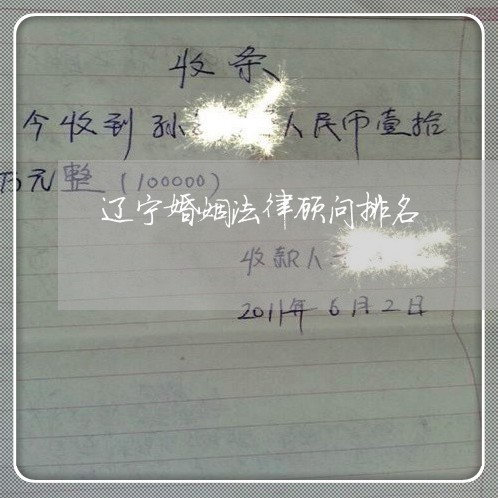 收条
今收到孙 人民币壹拾
万元整(100000)
辽宁婚姻法律顾问排名
收款人
2011年6月2日